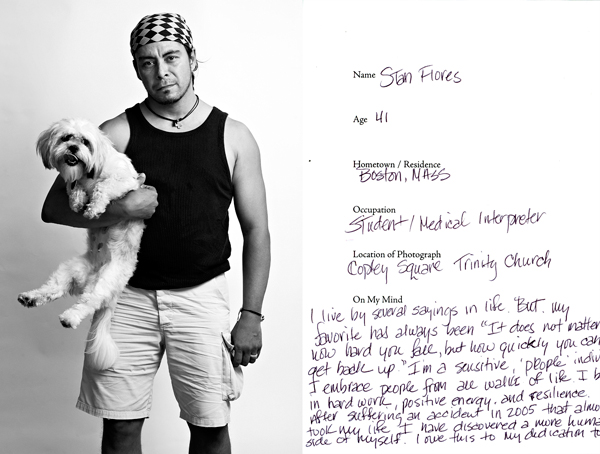 Name Stan Flores
Age 41
Hometown / Residence
Boston, MASS
Occupation
Student / Medical Interpreter
Location of Photograph
Copley Square Trinity Church
On My Mind
I live by several sayings in life. But, my
favorite has always been "It does not matter
how hard you fall, but how quickly you can
get back up." I'm a sensitive, 'people'
I embrace people from all walks of life. I
in hard work, positive energy, and resilience.
After suffering an accident in 2005 that
took my life I have discovered a more
side of myself. I owe this to my dedication to